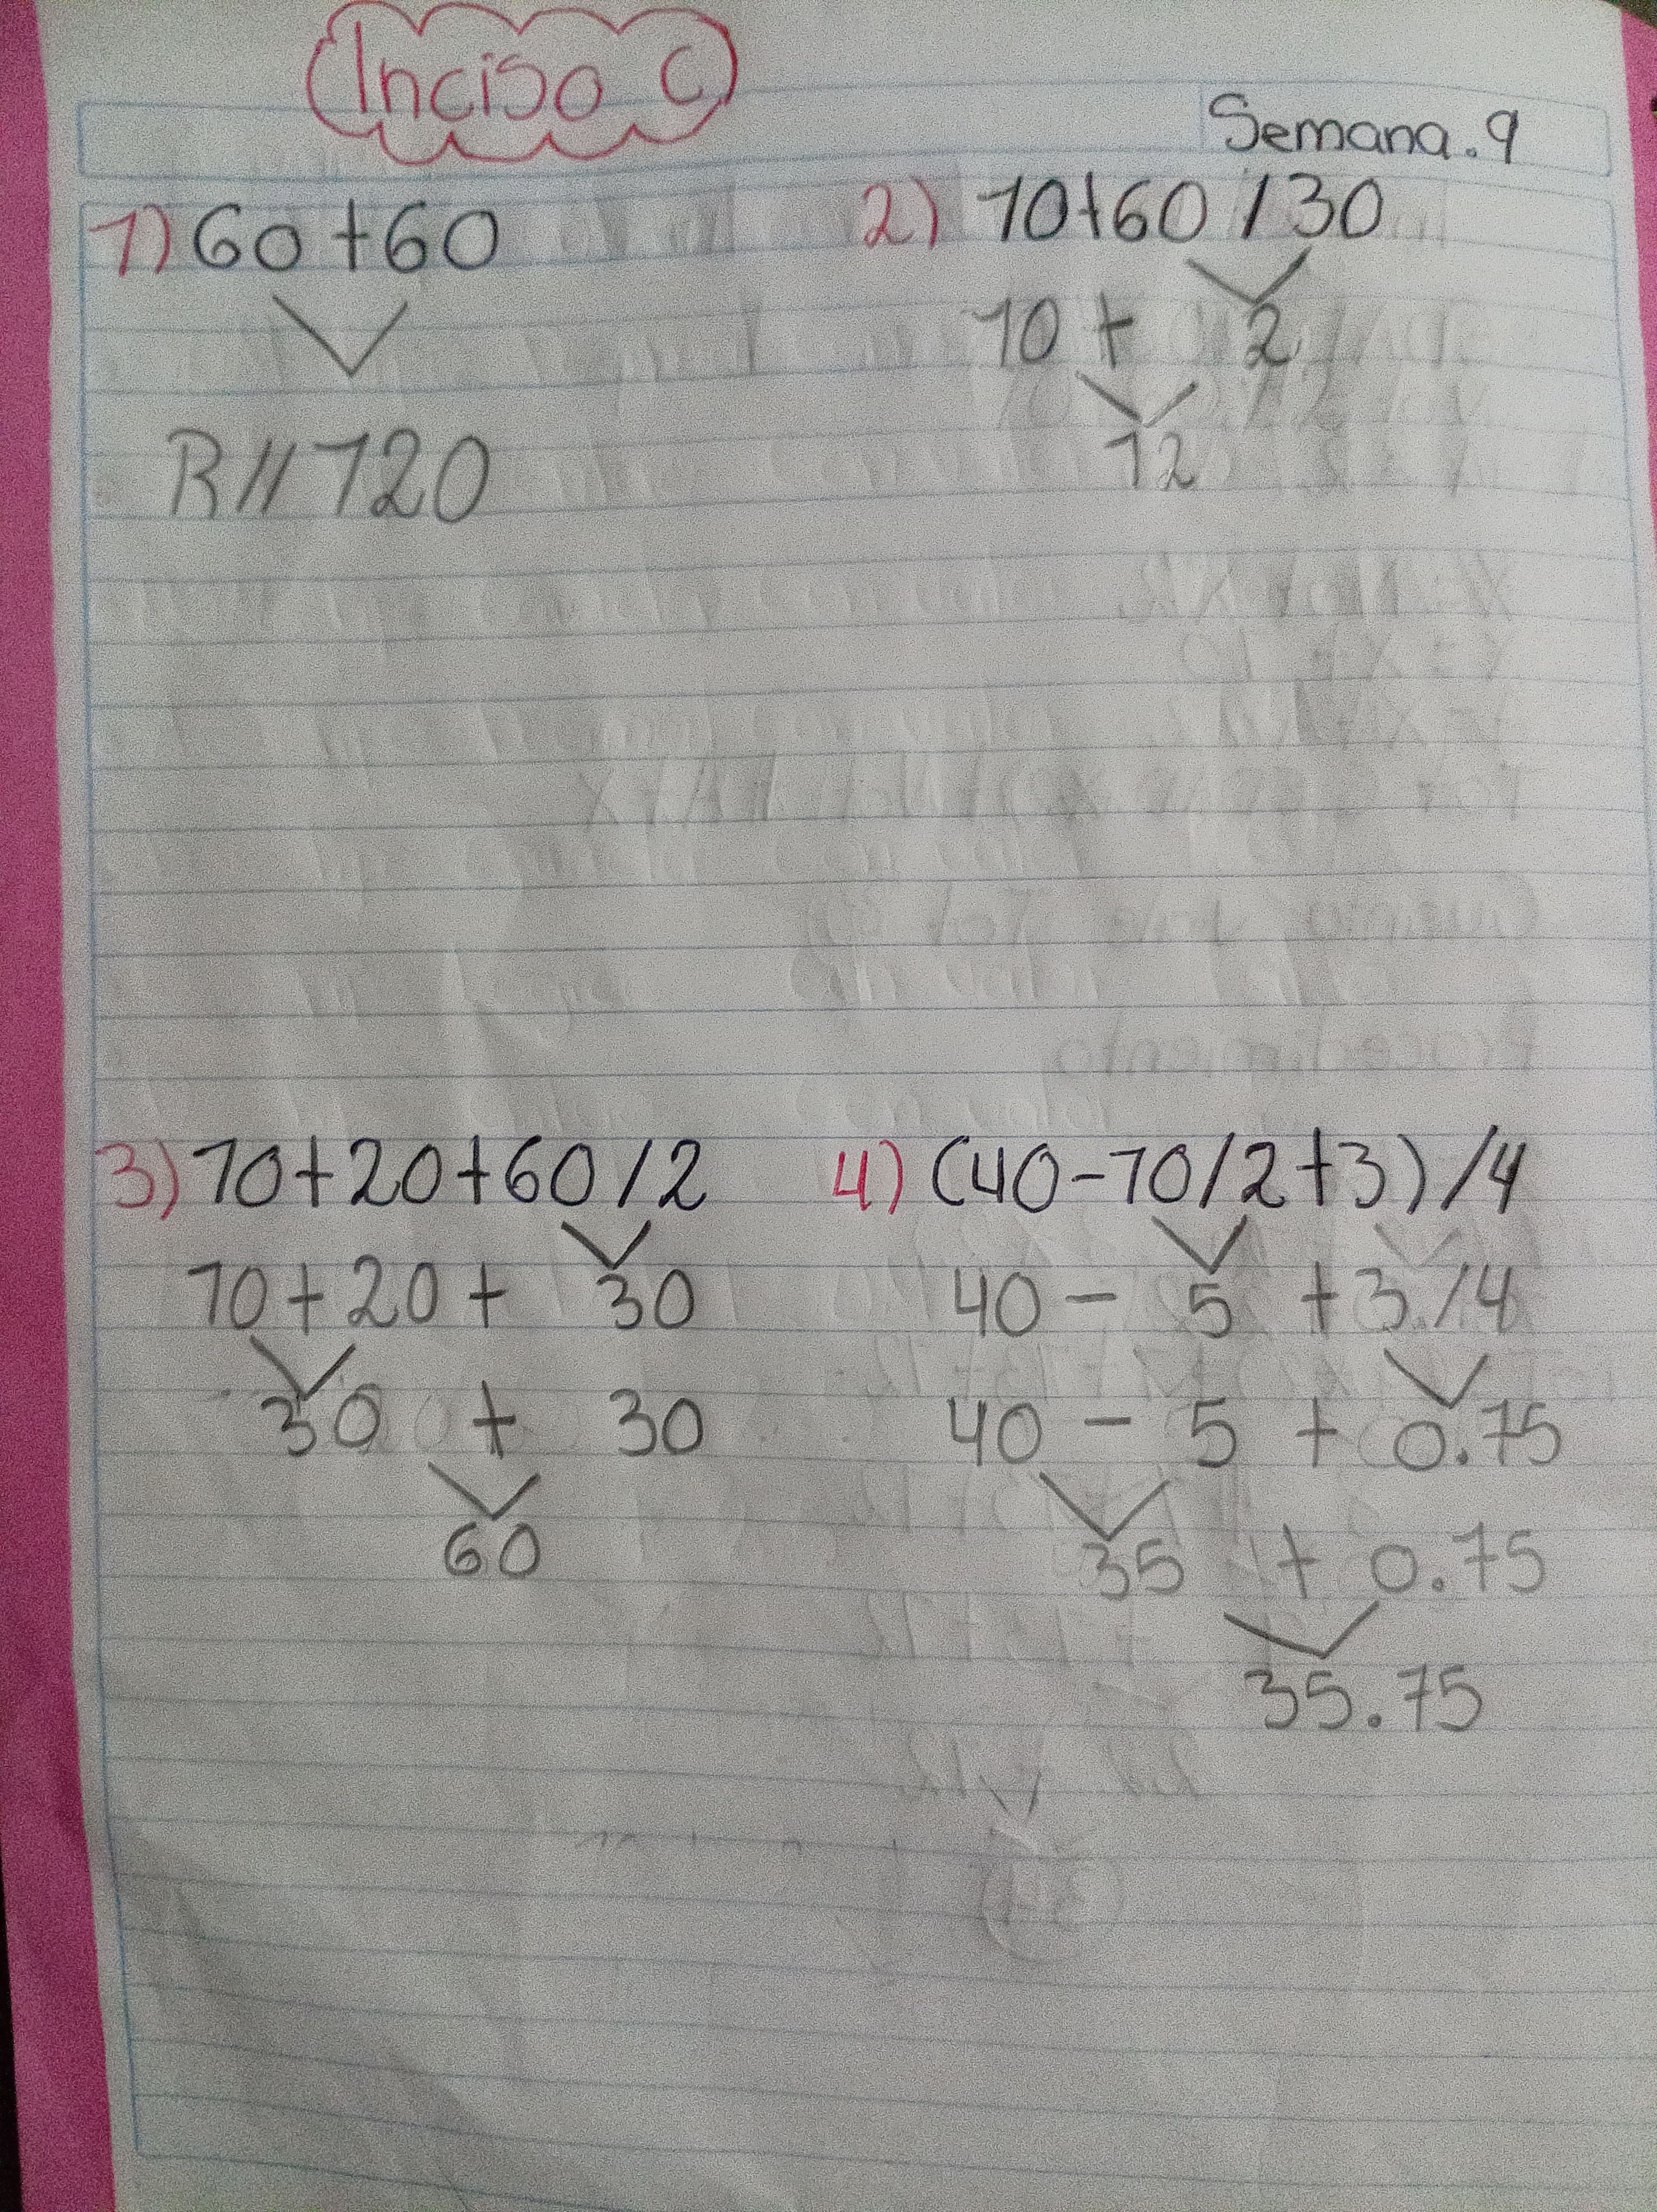 Inciso C
Semana.9
1) 60+60
R// 120
2) 10+60/30
10 + 2
12
3) 10+20+60/2
10+20+ 30
30 + 30
60
4) (40-10/2+3)/4
40 - 5 +3/4
40 - 5 + 0.75
35 + 0.75
35.75